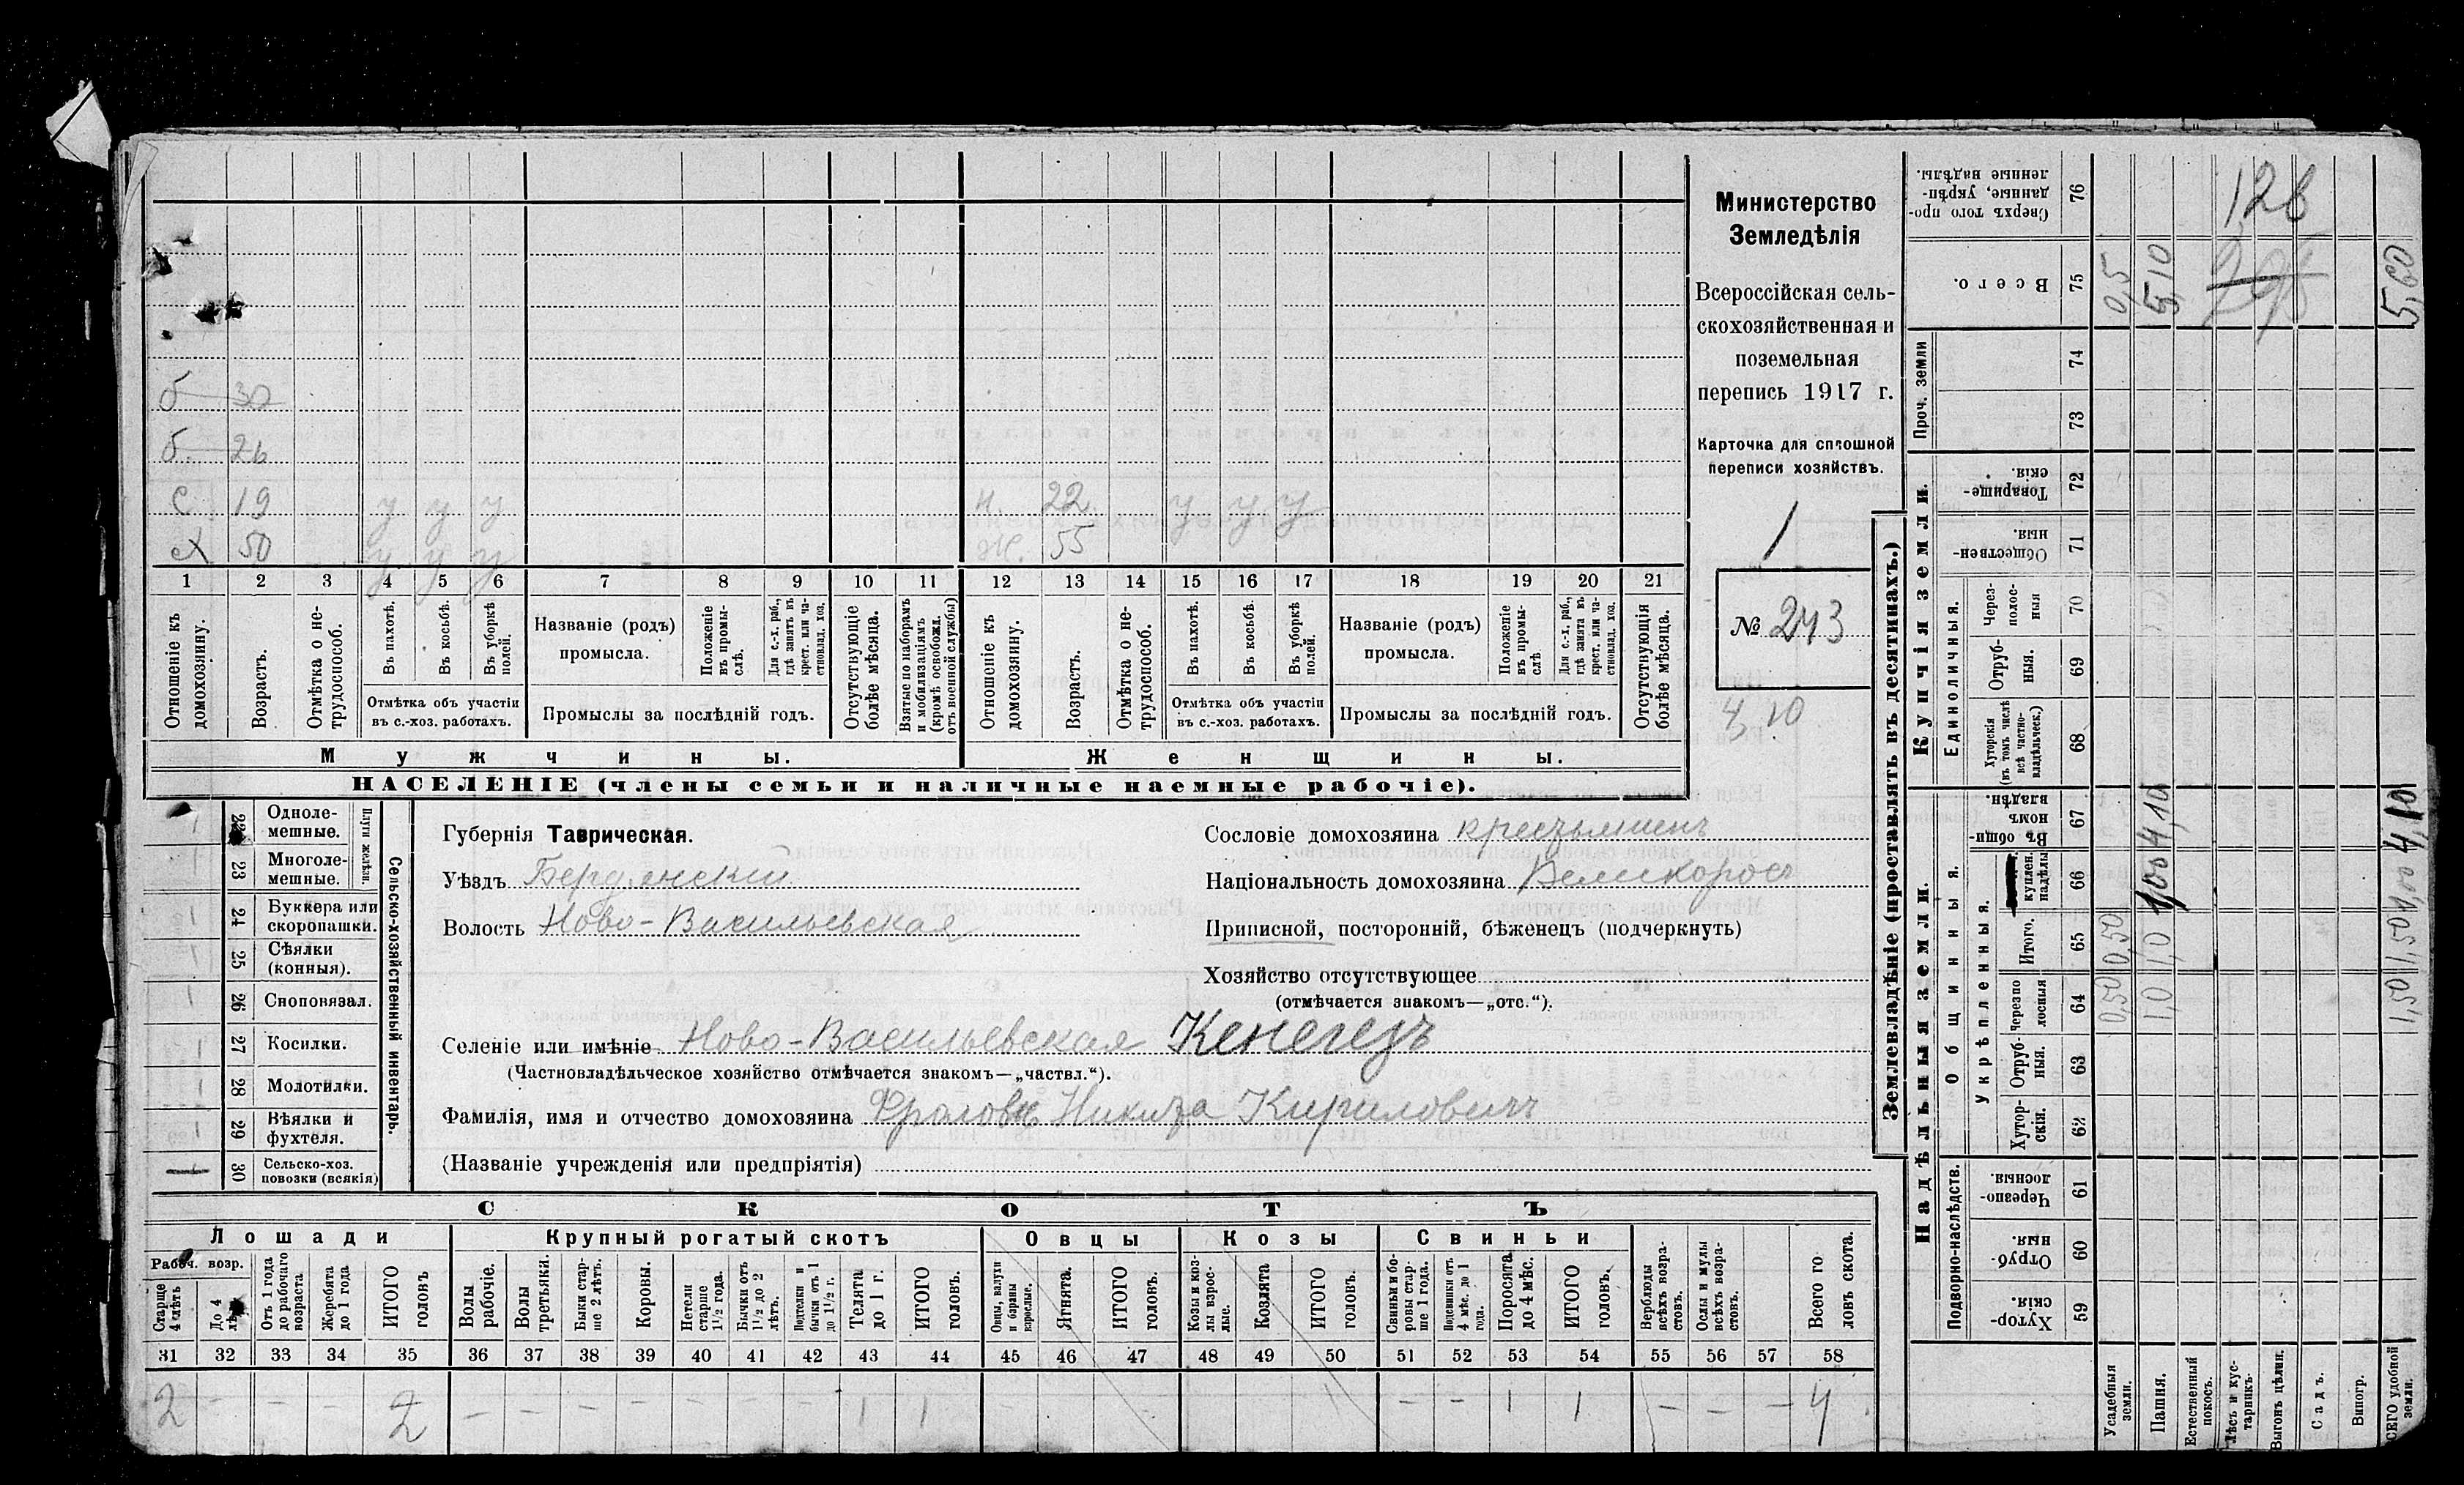 б 30
б. 26
с 19 у у у н. 22. у у у
сх 50 у у у ж. 55
1 2 3 4 5 6 7 8 9 10 11 12 13 14 15 16 17 18 19 20 21
Отношеніе къ домохозяину.
Возрастъ.
Отмѣтка о нетрудоспособ.
Въ пахотѣ.
Въ косьбѣ.
Въ уборкѣ полей.
Отмѣтка объ участіи
въ с.-хоз. работахъ.
Названіе (родъ)
промысла.
Положеніе въ промыслѣ.
Для с.-х. раб., гдѣ занятъ въ крест. или частновлад. хоз.
Промыслы за послѣдній годъ.
Отсутствующіе болѣе мѣсяца.
Взятые по наборамъ и мобилизаціямъ (кромѣ освобожд. отъ военной службы)
Отношеніе къ домохозяину.
Возрастъ.
Отмѣтка о нетрудоспособ.
Въ пахотѣ.
Въ косьбѣ.
Въ уборкѣ полей.
Отмѣтка объ участіи
въ с.-хоз. работахъ.
Названіе (родъ)
промысла.
Положеніе въ промыслѣ
Для с.-х. раб., гдѣ занята въ крест. или частновлад. хоз.
Промыслы за послѣдній годъ.
Отсутствующія болѣе мѣсяца.
Мужчины. Женщины.
НАСЕЛЕНІЕ (члены семьи и наличные наемные рабочіе).
Министерство
Земледѣлія
Всероссійская сель-
скохозяйственная и
поземельная
перепись 1917 г.
Карточка для сплошной
переписи хозяйствъ.
1
№ 243
4,10
Сельско-хозяйственный инвентарь.
Плуги желѣзн.
22 Одноле-
мешные.
23 Многоле-
мешные.
24 Буккера или
скоропашки.
25 Сѣялки
(конныя).
26 Сноповязал.
27 Косилки.
28 Молотилки.
29 Вѣялки и
фухтеля.
30 Сельско-хоз.
повозки (всякія)
Губернія Таврическая.
Уѣздъ Бердянскій
Волость Ново-Васильевская
Сословіе домохозяина крестьянинъ
Національность домохозяина Великоросъ
Приписной, посторонній, бѣженецъ (подчеркнуть)
Хозяйство отсутствующее
(отмѣчается знакомъ—„отс.“).
Селеніе или имѣніе Ново-Васильевская Кенегезъ
(Частновладѣльческое хозяйство отмѣчается знакомъ—„частвл.“).
Фамилія, имя и отчество домохозяина Фроловъ Никита Кириловичъ
(Названіе учрежденія или предпріятія)
СКОТЪ
Лошади Крупный рогатый скотъ Овцы Козы Свиньи
Рабоч. возр.
Старше 4 лѣтъ
До 4 лѣтъ
Отъ 1 года до рабочаго возраста
Жеребята до 1 года
ИТОГО головъ
Волы рабочіе.
Волы третьяки.
Быки старше 2 лѣтъ.
Коровы.
Нетели старше 1½ года.
Бычки отъ 1½ до 2 лѣтъ.
Подтелки и бычки отъ 1 до 1½ г.
Телята до 1 г.
ИТОГО головъ.
Овцы, валухи и бараны взрослые.
Ягнята.
ИТОГО головъ.
Козы и козлы взрослые.
Козлята
ИТОГО головъ.
Свиньи и боровы старше 1 года.
Подсвинки отъ 4 мѣс. до 1 года.
Поросята до 4 мѣс.
ИТОГО головъ.
Верблюды всѣхъ возрастовъ.
Ослы и мулы всѣхъ возрастовъ.
Всего головъ скота.
31 32 33 34 35 36 37 38 39 40 41 42 43 44 45 46 47 48 49 50 51 52 53 54 55 56 57 58
2 - - - 2 - - - - - - - 1 1 - - 1 1 - - - 4
Землевладѣніе (проставлять въ десятинахъ.)
Сверхъ того проданные, укрѣпленные надѣлы. 76
126
Всего. 75
0,5 5,10 5,60
Проч. земли 74 73
Купчія земли.
Товарищескія. 72
Общественныя. 71
Единоличныя.
Черезполосныя 70
Отрубныя. 69
Хуторскія (въ томъ числѣ всѣ частновладѣльческ.) 68
Надѣльныя земли.
Общинныя.
Въ общинномъ владѣн. 67
4,10 4,10
куплен. надѣлы 66
1,00 1,00
Укрѣпленныя.
Итого. 65
0,50 1,0 1,50
Черезполосныя 64
0,50 1,0 1,50
Отрубныя. 63
Хуторскія. 62
Подворно-наслѣдств.
Черезполосныя. 61
Отрубныя. 60
Хуторскія. 59
Усадебныя земли.
Пашня.
Естественный покосъ.
Лѣсъ и кустарникъ.
Выгонъ цѣлин.
Садъ.
Виногр.
ВСЕГО удобной земли.